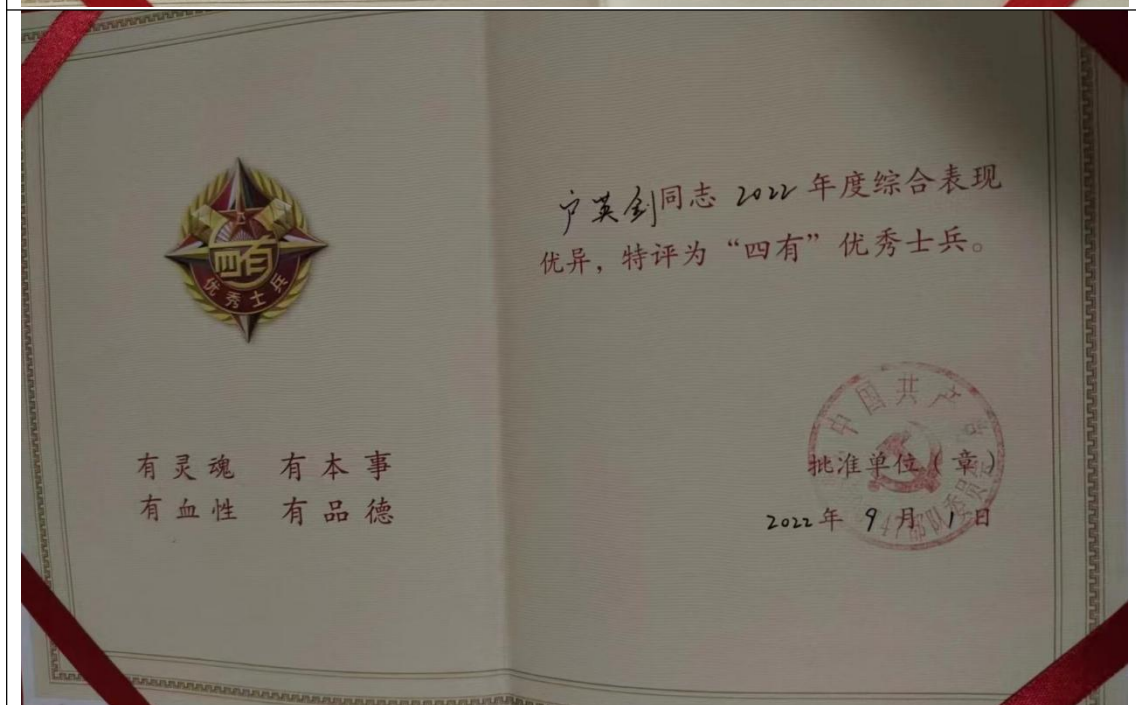 四有
优秀士兵
有灵魂 有本事
有血性 有品德
户英剑同志 2022 年度综合表现
优异，特评为“四有”优秀士兵。
中国共产
批准单位（章）
2022年 9月 1日
47部队委员会